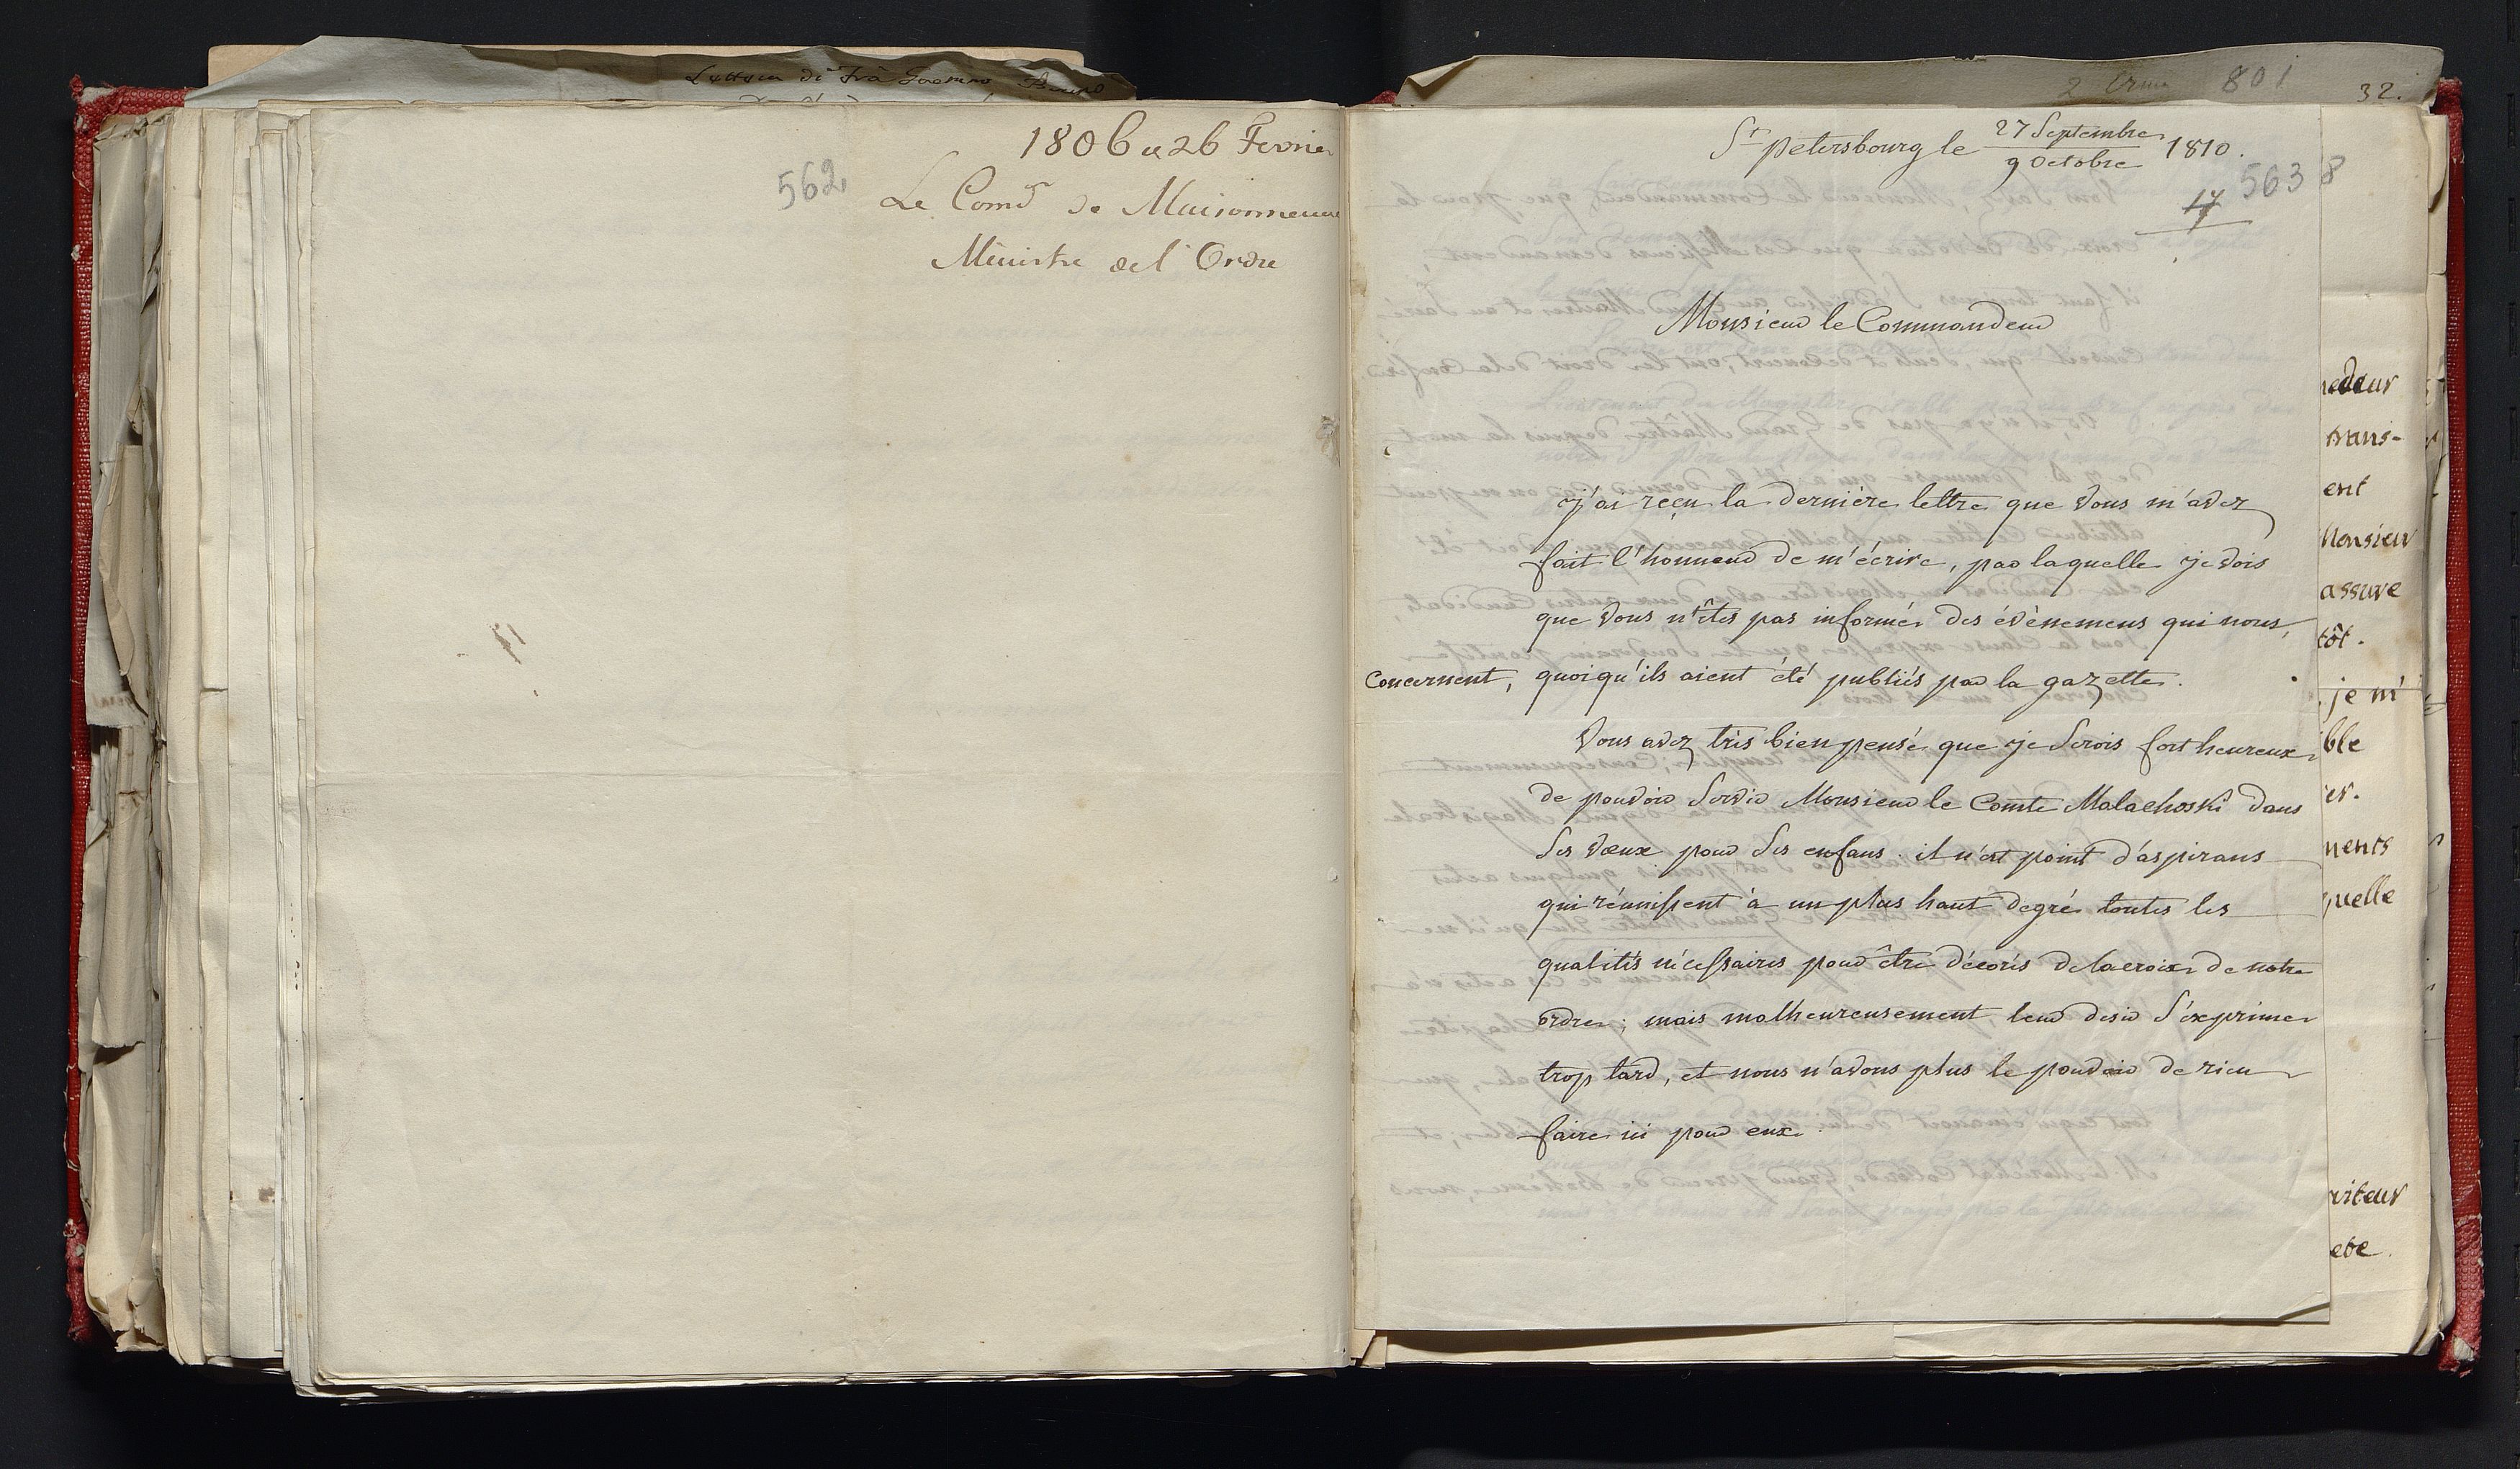 Lettera di Frà
1806 le 26 Fevrier
562
Le Comd.r de Maisonneuve
Ministre de l'Ordre
801
32.
St. petersbourg le 27 Septembre / 9 Octobre 1810.
563 8
17
Monsieur le Commandeur
j'ai reçu la derniére lettre que vous m'avez
fait l'honneur de m'écrire, par laquelle je vois
que vous n'êtes pas informé des évènemens qui nous
concernent, quoiqu'ils aient été publiés par la gazette.
Vous avez très bien pensé que je serois fort heureux
de pouvoir servir Monsieur le Comte Malachoski dans
ses vœux pour ses enfans. il n'est point d'aspirans
qui réunissent à un plus haut degré toutes les
qualités nécessaires pour être décorés de la croix de notre
ordre; mais malheureusement, leur desir s'exprime
trop tard, et nous n'avons plus le pouvoir de rien
faire ici pour eux.
deur
trans-
ent
Monsieur
assure
tôt.
je m'
ble
er.
ments
quelle
viteur